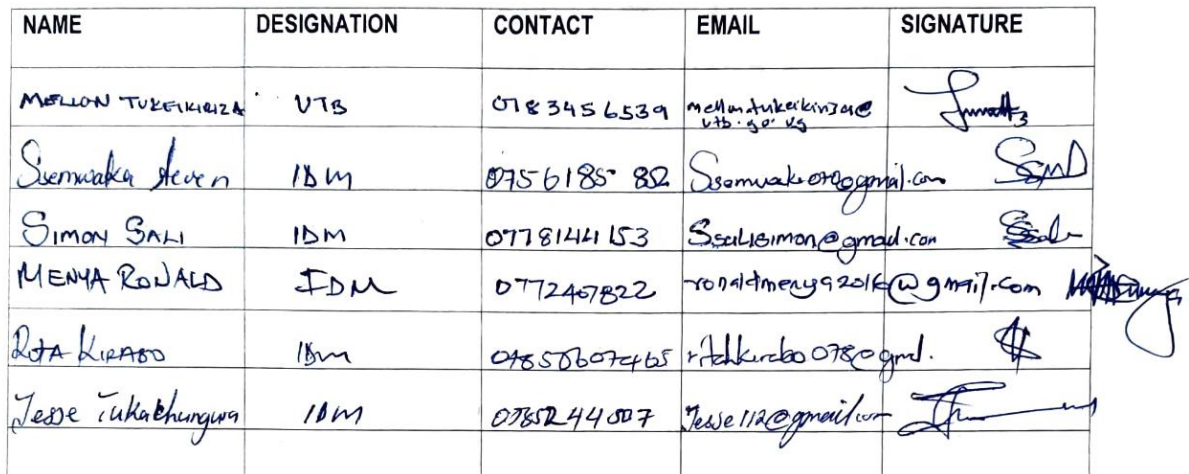 NAME DESIGNATION CONTACT EMAIL SIGNATURE
MELLON TUKEIKIRIZA UTB 0783456539 mellontukeikiriza@
utb.go.ug
Ssemwaka Steven IDM 0756185 852 @gmail.com
SIMON SALI IDM 0778144153 Ssalisimon@gmail.com
MENYA RONALD IDM 0772407822 ronaldmenya2016@gmail.com
RITA KIRABO IDM
Jesse Tukachungwa IDM 0785244507 Jesse112@gmail.com